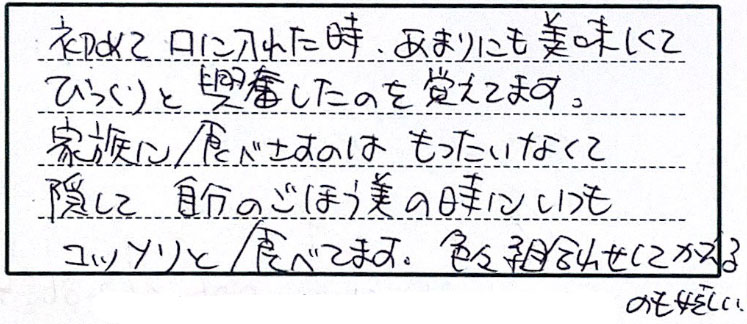 初めて口に入れた時、あまりにも美味しくて
びっくりと興奮したのを覚えてます。
家族に食べさすのはもったいなくて
隠して自分のごほう美の時にいつも
コッソリと食べてます。色々組合わせしてかえる
のも嬉しい